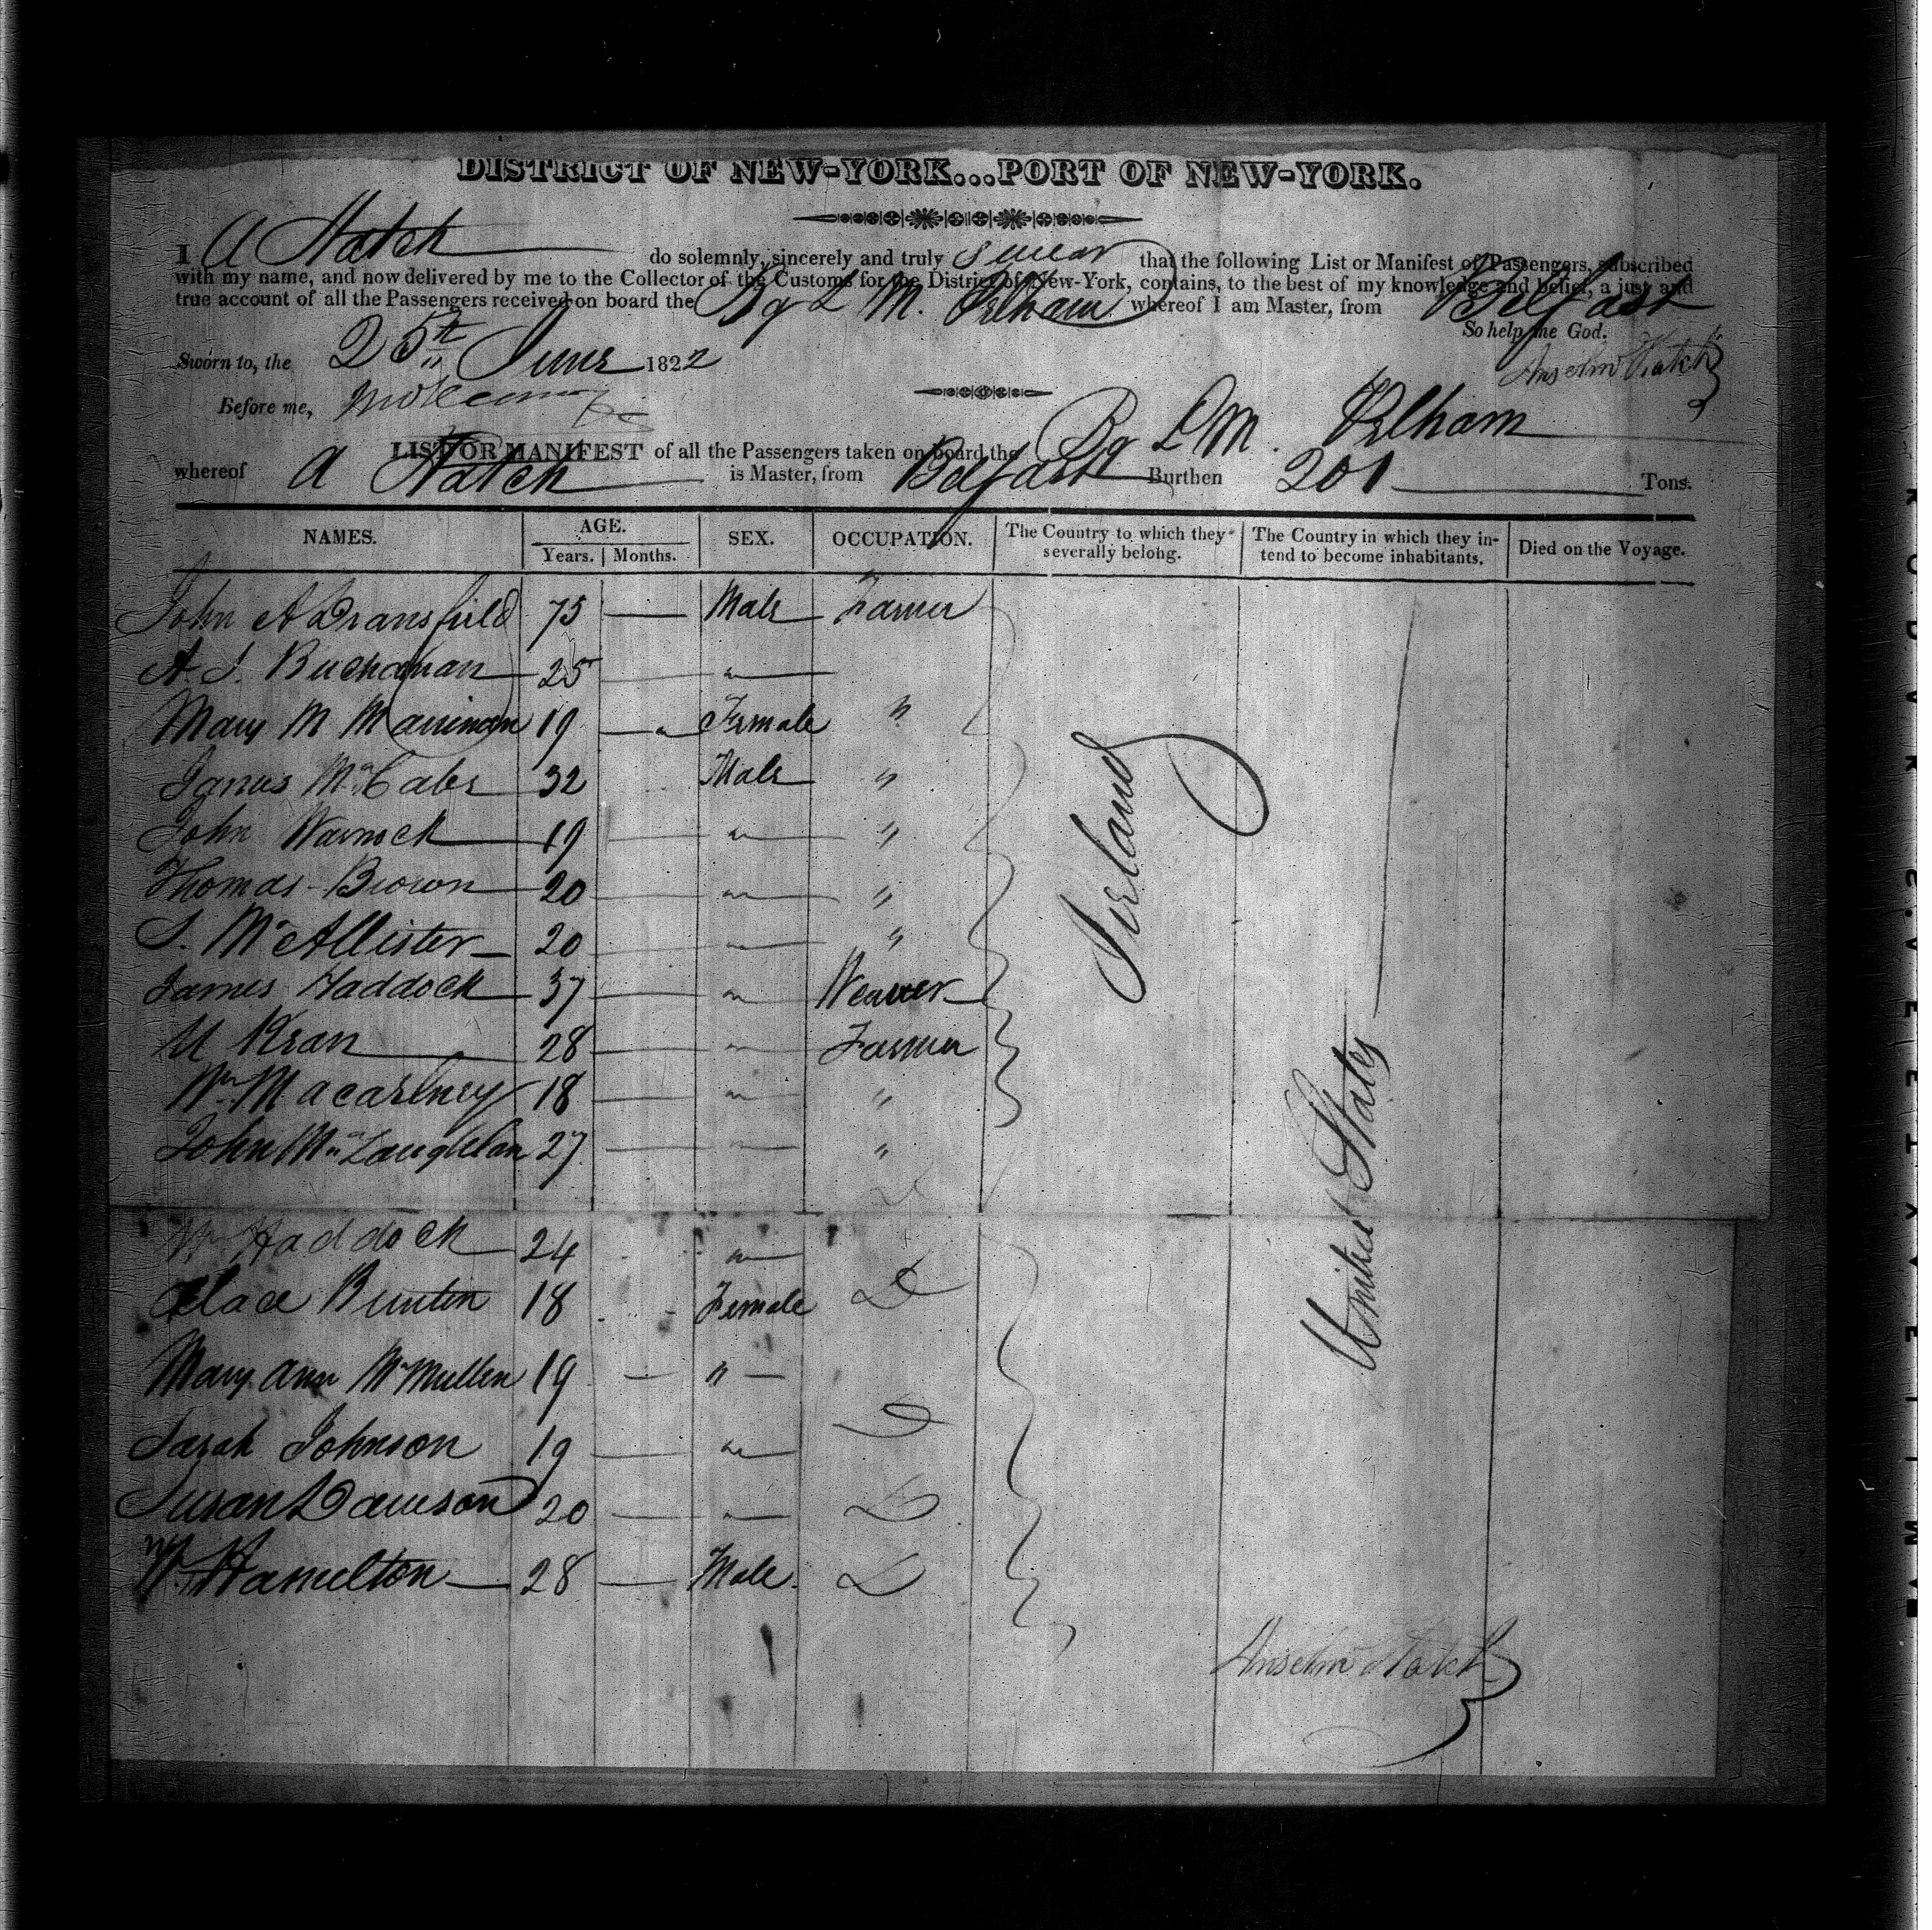 DISTRICT OF NEW-YORK...PORT OF NEW-YORK.
I A Hatch do solemnly, sincerely and truly swear that the following List or Manifest of Passengers, subscribed
with my name, and now delivered by me to the Collector of the Customs for the District of New-York, contains, to the best of my knowledge and belief, a just and
true account of all the Passengers received on board the Bg L M. Pelham whereof I am Master, from Belfast
So help me God.
Sworn to, the 25th June 1822
Anselm Hatch
Before me,
LIST OR MANIFEST of all the Passengers taken on board the Bg L M. Pelham
whereof A Hatch is Master, from Belfast Burthen 201 Tons.
NAMES. AGE. Years. Months. SEX. OCCUPATION. The Country to which they severally belong. The Country in which they intend to become inhabitants. Died on the Voyage.
John A Dransfield 75 — Male Farmer
A. S. Buchanan 25 — "
Mary M Marriman 19 — Female "
James McCabe 32 Male "
John Warnock 19 — " "
Thomas Brown 20 — " "
S. McAllister 20 — " "
James Haddock 37 — " Weaver
U Kean 28 — " Farmer
Wm Macartney 18 — " "
John McLaughlan 27 — "
Ireland
United States
Wm Haddock 24 "
Buntin 18 Female D
Mary Ann McMullen 19 — "
Sarah Johnson 19 — " D
Susan Dawson 20 — " D
W. Hamelton 28 — Male D
Anselm Hatch